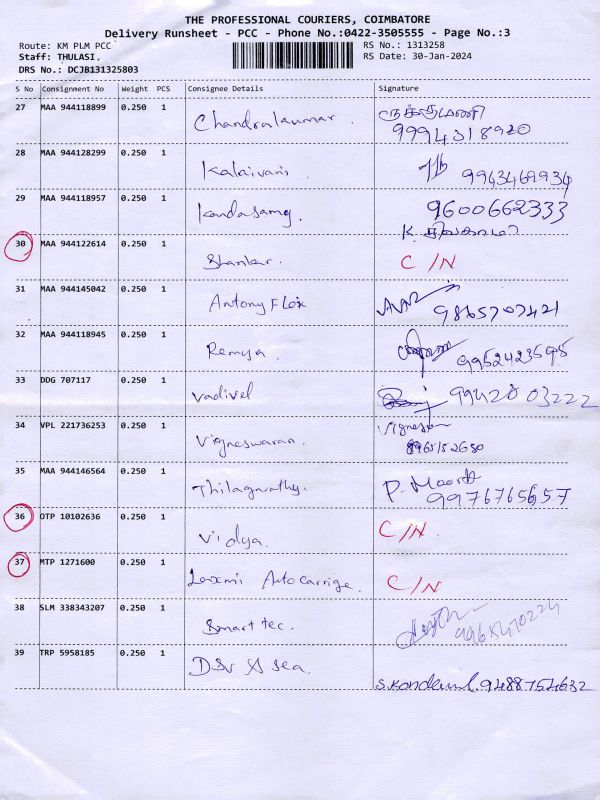 THE PROFESSIONAL COURIERS, COIMBATORE
Delivery Runsheet - PCC - Phone No.:0422-3505555 - Page No.:3
Route: KM PLM PCC RS No.: 1313258
Staff: THULASI. RS Date: 30-Jan-2024
DRS No.: DCJB131325803
S No Consignment No Weight PCS Consignee Details Signature
27 MAA 944118899 0.250 1 Chandrakumar. ருக்குமணி
9994318920
28 MAA 944128299 0.250 1 Kalaivani. 9943469934
29 MAA 944118957 0.250 1 Kandasamy. 9600662333
K.
30 MAA 944122614 0.250 1 Shankar. C/N
31 MAA 944145042 0.250 1 Antony Flox 9865707421
32 MAA 944118945 0.250 1 Remya. 9952423595
33 DDG 707117 0.250 1 Vadivel 9942003222
34 VPL 221736253 0.250 1 Vigneswaran. Vignesh
35 MAA 944146564 0.250 1 Thilagavathy. P. Moorth
9976765657
36 OTP 10102636 0.250 1 Vidya. C/N.
37 MTP 1271600 0.250 1 Laxmi Autocarrige. C/N
38 SLM 338343207 0.250 1 Smart tec.
39 TRP 5958185 0.250 1 DSV A Sea.
9488754632